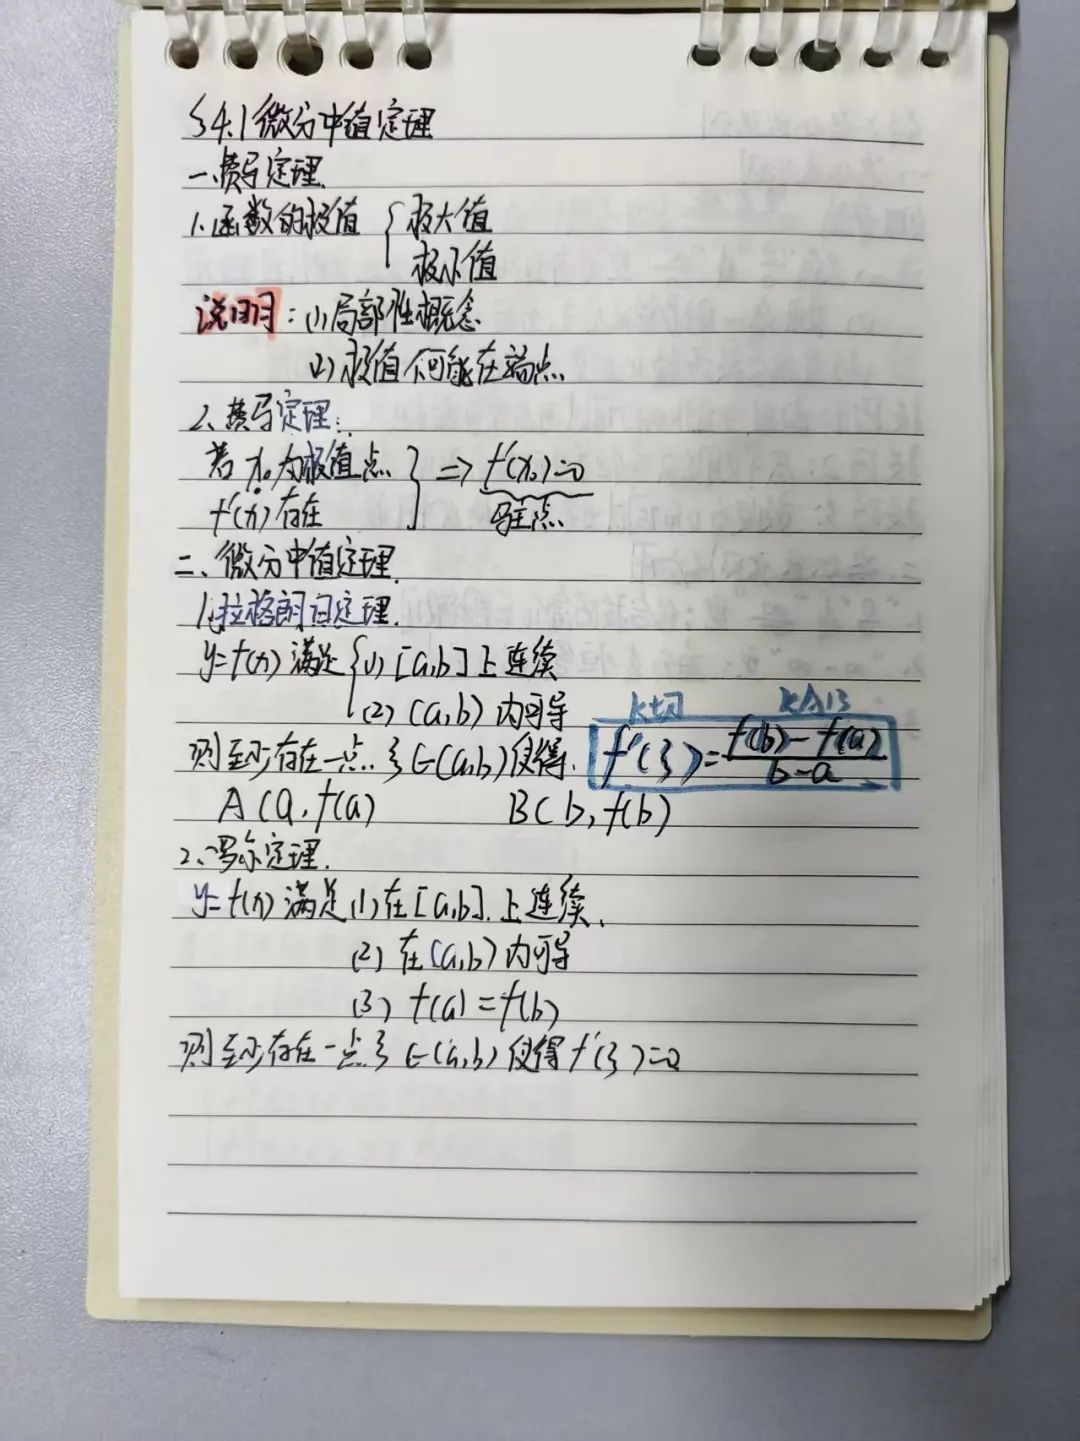 §4.1 微分中值定理
一、费马定理.
1. 函数的极值 { 极大值
极小值
说明: (1) 局部性概念
(2) 极值不可能在端点.
2、费马定理:
若 x₀ 为极值点 } => f'(x₀)=0
f'(x₀) 存在 驻点.
二、微分中值定理.
1. 拉格朗日定理.
y=f(x) 满足 { (1) [a,b] 上连续
(2) (a,b) 内可导
k切 kAB
则至少存在一点 ξ∈(a,b) 使得. f'(ξ)=\frac{f(b)-f(a)}{b-a}
A(a, f(a) B(b, f(b)
2、罗尔定理.
y=f(x) 满足 (1) 在[a,b]. 上连续、
(2) 在(a,b) 内可导
(3) f(a)=f(b)
则至少存在一点 ξ∈(a,b) 使得 f'(ξ)=0